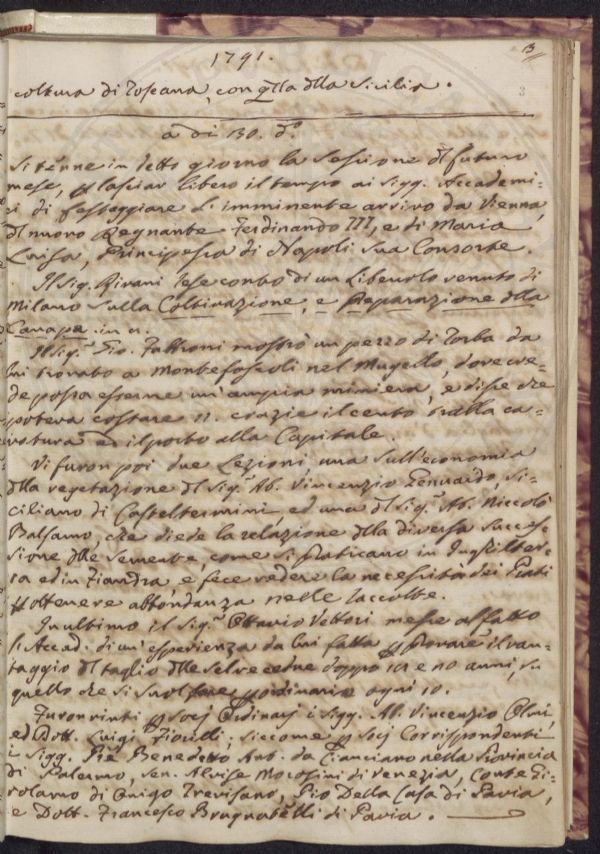 1791.
13
3
coltura di Toscana, con qlla dlla Sicilia.
a dì 30. do
Si tenne in detto giorno la Sessione dl futuro
mese, p lasciar libero il tempo ai Sigg. Accademi-
ci di festeggiare l'imminente arrivo da Vienna
dl nuovo Regnante Ferdinando III, e di Maria
Luisa, Principessa di Napoli sua Consorte.
Il Sig. Rivani rese conto di un Libercolo venuto di
Milano sulla Coltivazione, e Preparazione dlla
Canapa. in
Il Sig.r Gio. Fabbroni mostrò un pezzo di Torba da
lui trovato a Montefoscoli nel Mugello, dove cre-
de possa esserne un'ampia miniera, e disse che
poteva costare 11. crazie il cento tralla ca-
vatura ed il porto alla Capitale.
Vi furon poi due Lezioni, una sull'economia
dlla vegetazione dl Sig.r Ab. Vincenzio Gennardo, Si-
ciliano di Casteltermini ed una dl Sig.r Ab. Niccolò
Balsamo, che diede la relazione dlla diversa succes-
sione dlle semente, come si praticano in Inghilter-
ra ed in Fiandra, e fece vedere la necessità dei Prati
p ottenere abbondanza nelle raccolte.
In ultimo il Sig.r Ottavio Vettori messe al fatto
l'Accad. di un'esperienza da lui fatta p provare il van-
taggio dl taglio dlle selve cedue doppo e no anni, su
quello che si suol fare p ordinario ogni 10.
Furon vinti p Socj Ordinarj i Sigg. Ab. Vincenzio
ed Dott. Luigi Fiorilli, siccome p Socj Corrispondenti
i Sigg. Pre Benedetto Ant. da Cianciano nella Provincia
di Palermo, Sen. Alvise Morosini di Venezia, Conte Gi-
rolamo di Onigo Trevisano, Pio Della Casa di Pavia,
e Dott. Francesco Brugnatelli di Pavia.